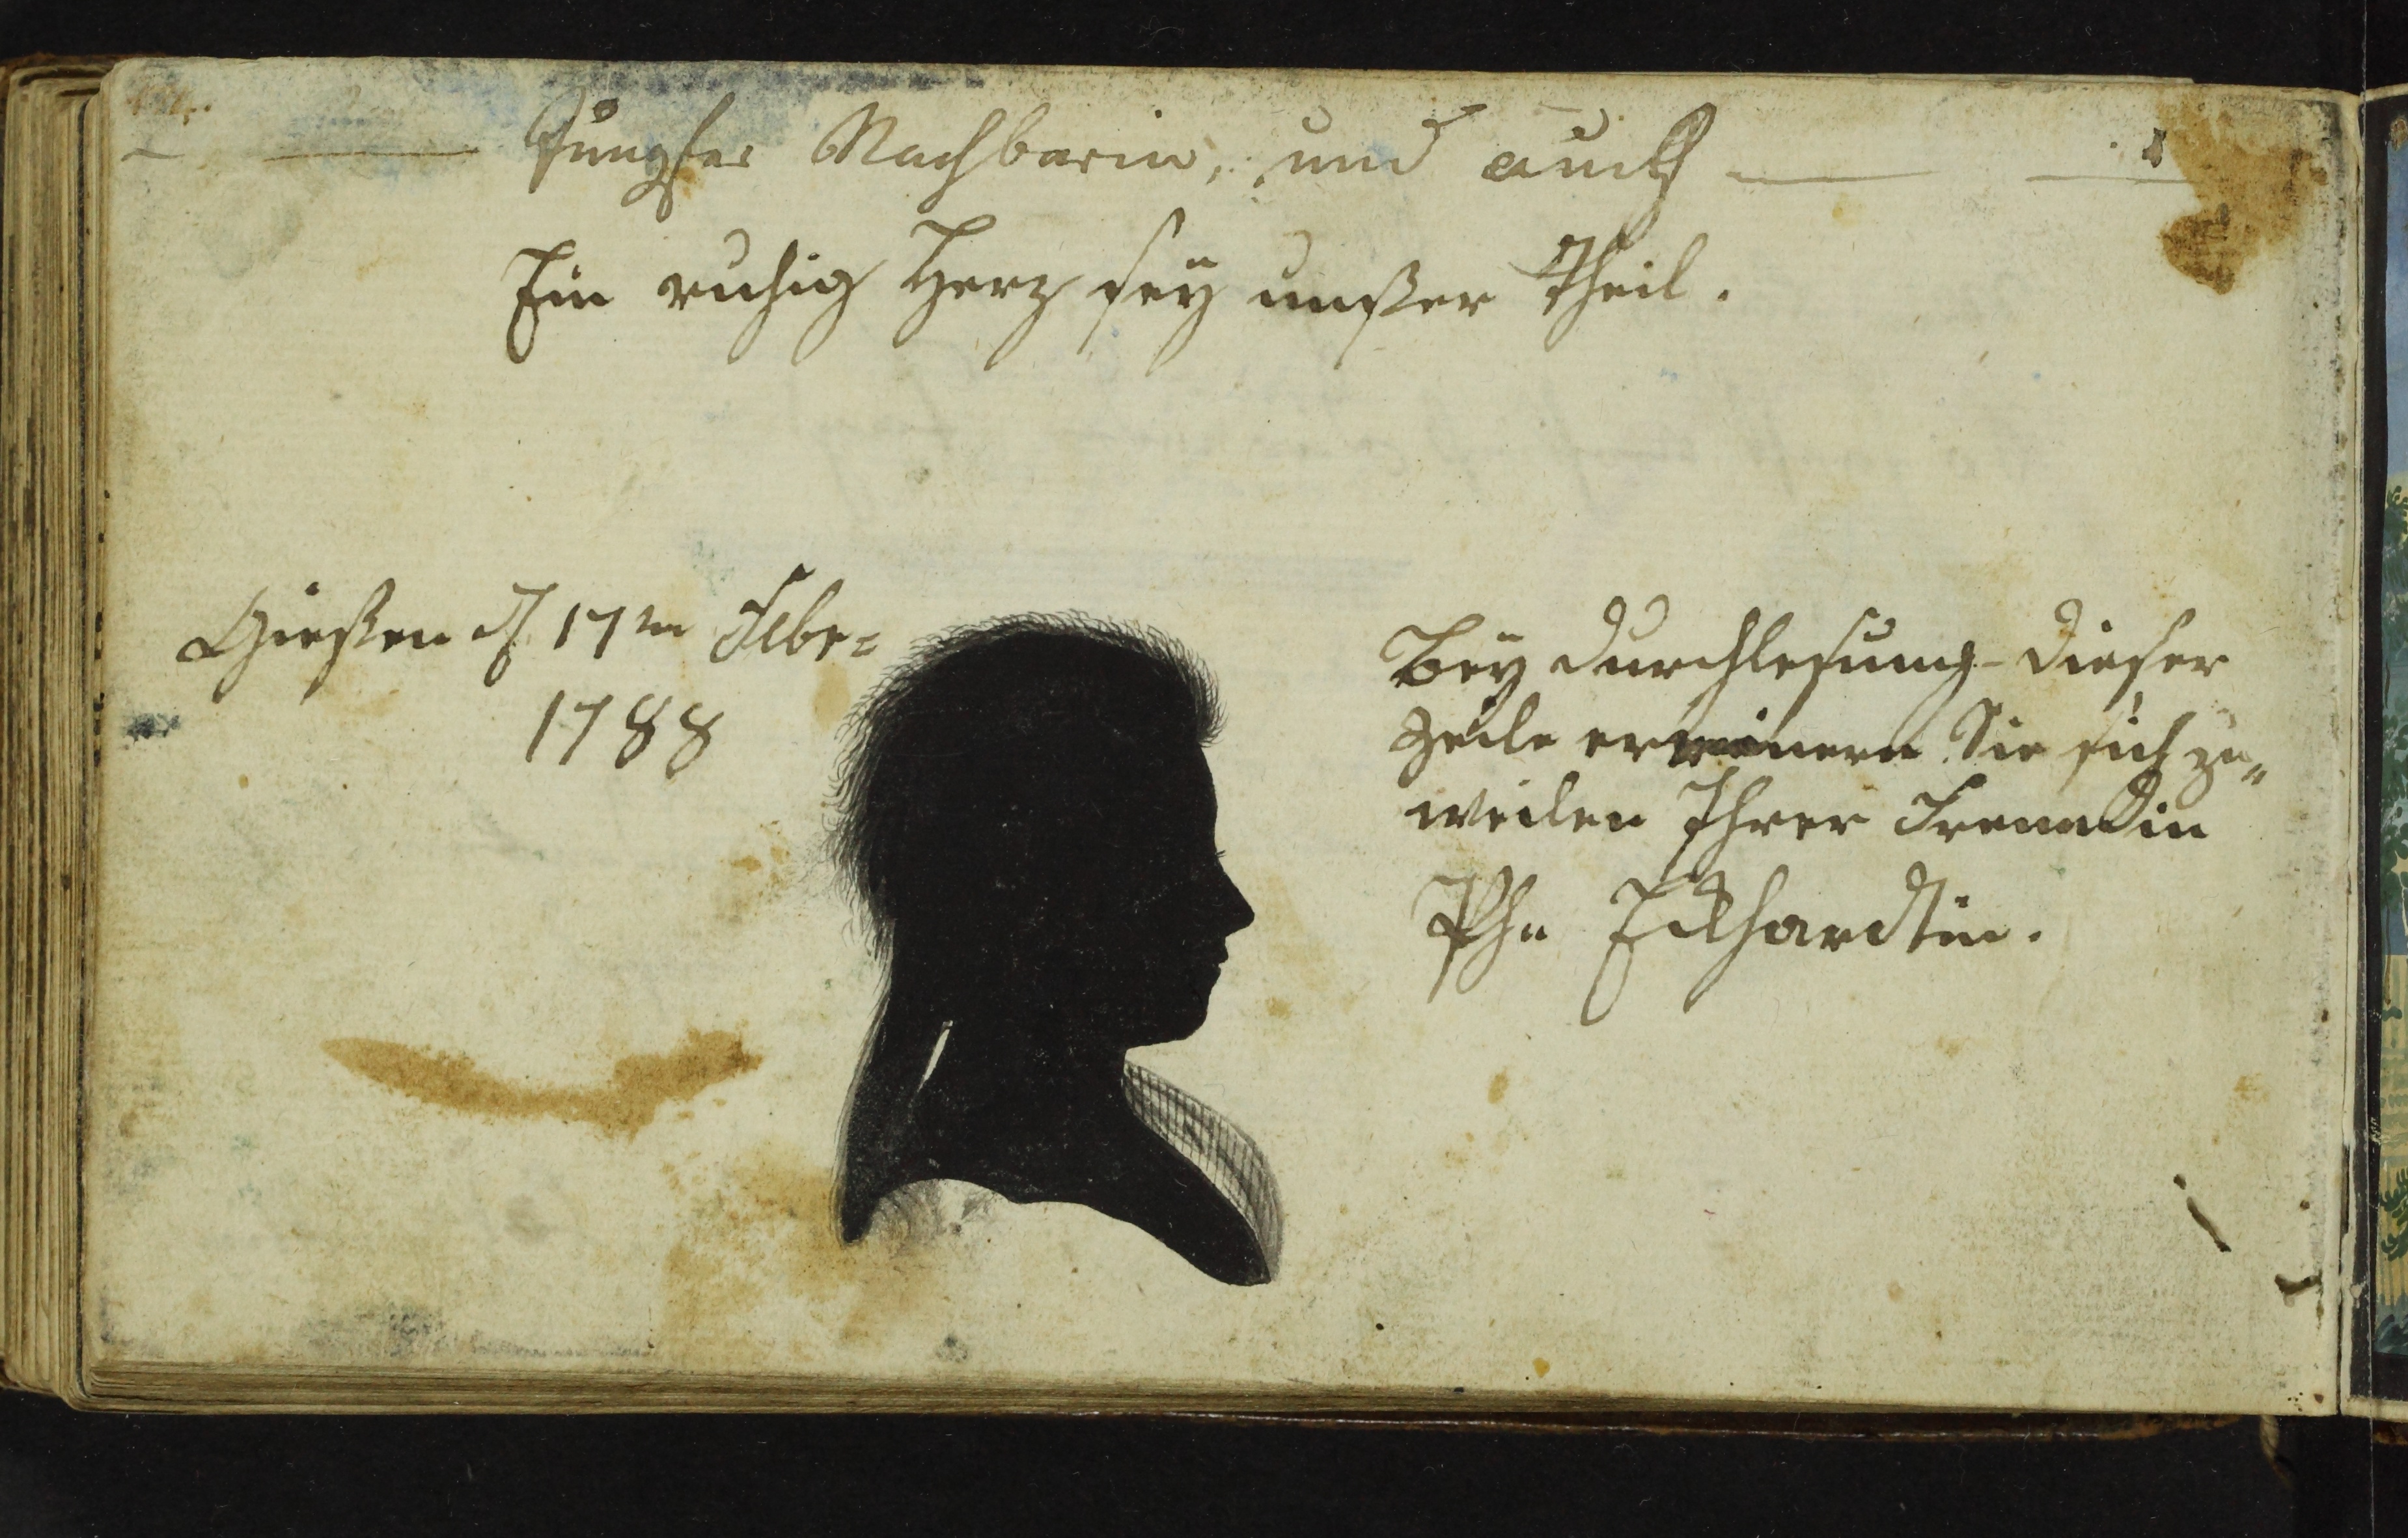 Jungfer Nachbarin, und auch
Ein ruhig Herz sey unßer Theil.
Gießen d 17ten Febr=
1788
Bey durchlesung dieser
Zeile erinnern Sie sich zu„
weilen Ihrer Freundin
Phn Eckhardtin.